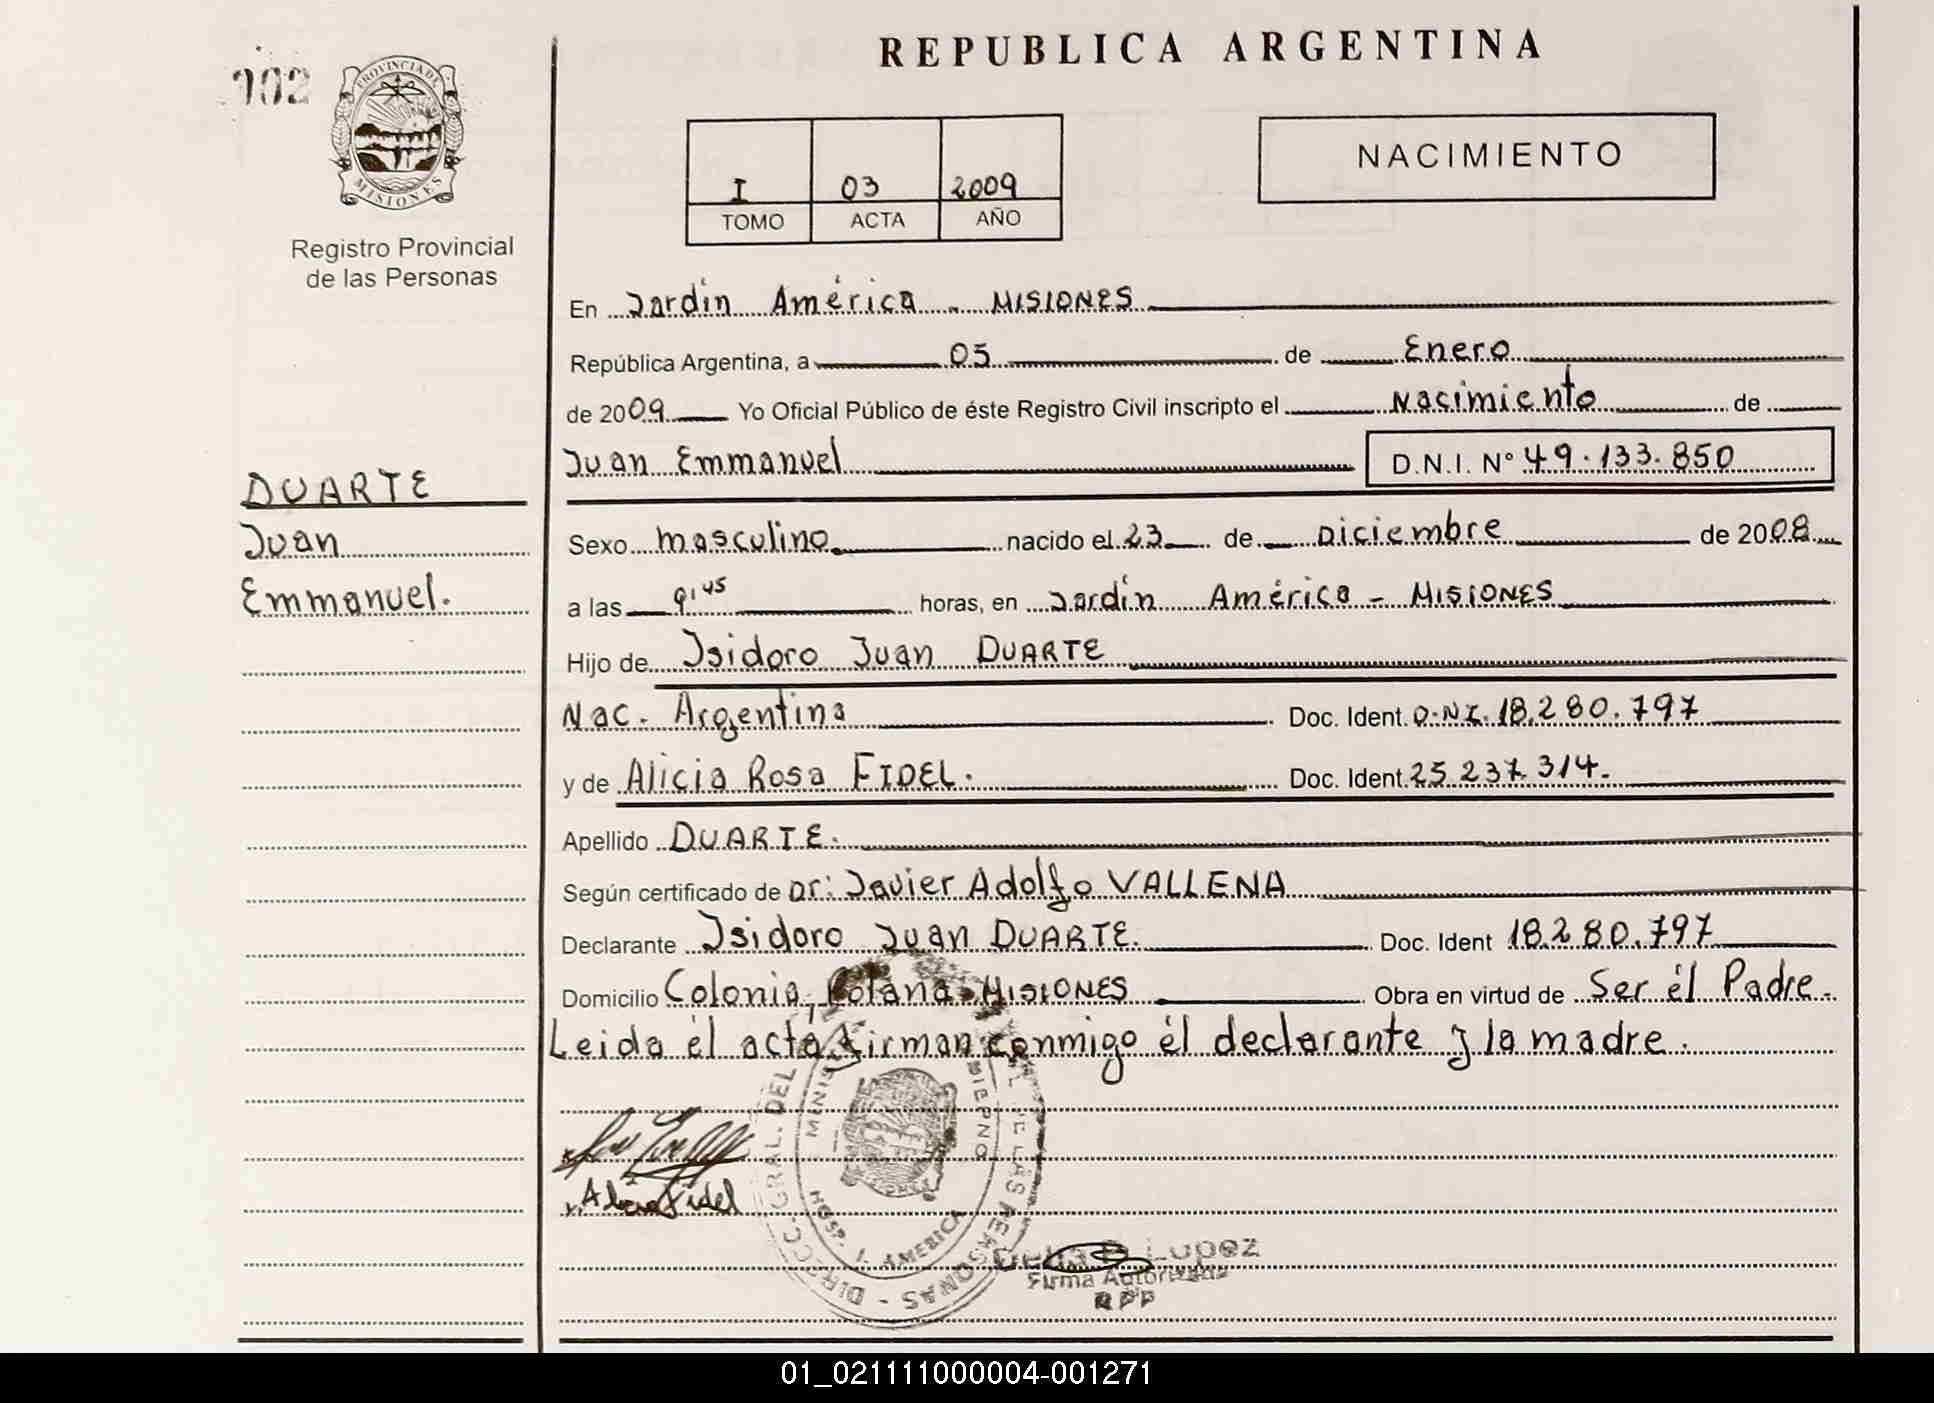 REPUBLICA ARGENTINA
102
PROVINCIA DE
MISIONES
Registro Provincial
de las Personas
I 03 2009
TOMO ACTA AÑO
NACIMIENTO
En Jardín América - MISIONES
República Argentina, a 05 de Enero
de 2009 Yo Oficial Público de éste Registro Civil inscripto el Nacimiento de
Juan Emmanuel D.N.I. N° 49.133.850
DUARTE
Juan
Emmanuel.
Sexo masculino nacido el 23 de Diciembre de 2008
a las 9,45 horas, en Jardín América - MISIONES
Hijo de Isidoro Juan DUARTE
Nac. Argentina Doc. Ident. D.N.I. 18.280.797
y de Alicia Rosa FIDEL. Doc. Ident. 25.237.314.
Apellido DUARTE.
Según certificado de Dr: Javier Adolfo VALLENA
Declarante Isidoro Juan DUARTE. Doc. Ident 18.280.797
Domicilio Colonia Polana - MISIONES Obra en virtud de Ser él Padre.
Leida él acta, firman conmigo él declarante y la madre.
Alicia Fidel
DIRECC. GRAL. DEL DE LAS PERSONAS
HOSP. J. AMERICA
Delia B. Lopez
Firma Autorizada
RPP
01_021111000004-001271